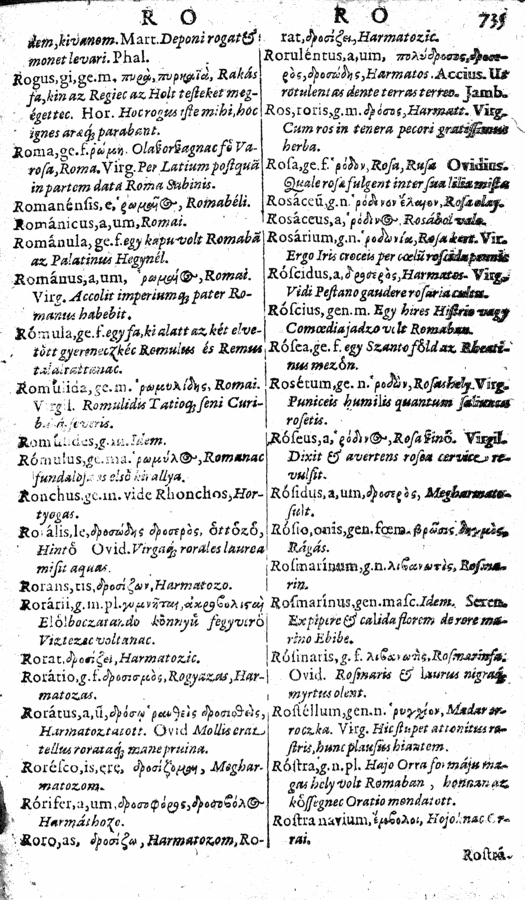 R O
R O
735
dem, kivanom. Mart. Deponi rogat &
monet levari. Phal.
Rogus, gi, ge.m, πυρὰ, πυρκαϊὰ, Rakás
fa, kin az Regiec az Holt testeket meg-
égettec. Hor. Hoc rogus iste mihi, hoc
ignes araq; parabant.
Roma, ge.f. ῥώμη. Olaßorßagnac fö Va-
rosa, Roma. Virg. Per Latium postquā
in partem data Roma Sabinis.
Romanénsis, e, Romabéli.
Románicus, a, um, Romai.
Románula, ge.f. egy kapu volt Romabā
az Palatinus Hegynél.
Románus, a, um, Romai.
Virg. Accolit imperiumq; pater Ro-
manus habebit.
Rómula, ge.f. egy fa, ki alatt az két elve-
tött gyereneczkéc Romulus és Remus
talalrattanac.
Romulida, ge.m. ῥωμυλίδης, Romai.
Virgil. Romulidis Tatioq; seni Curi-
bus severis.
Romulides, g.m. Idem.
Rómulus, ge.ma. Romanac
fundaloja es elsö kirallya.
Ronchus, ge.m. vide Rhonchos, Hor-
tyogas.
Rorális, le, δροσώδης δροσερὸς,
Hintö Ovid. Virgaq; rorales laurea
misit aquas.
Rorans, tis, δροσίζων, Harmatozo.
Rorárii, g.m.pl. γυμνῆται,
Elölboczatando könnyü fegyvirö
Viztezac voltanac.
Rorat, δροσίζει, Harmatozic.
Rorátio, g.f. δροσισμὸς, Rogyazas, Har-
matozas.
Rorátus, a, ū,
Harmatoztatott. Ovid Mollis erat
tellus rorataq; mane pruina.
Rorésco, is, ere, δροσίζομαι, Meghar-
matozom.
Rórifer, a, um, δροσοφόρος,
Harmáthozo.
Roro, as, δροσίζω, Harmatozom, Ro-
rat, δροσίζει, Harmatozic.
Roruléntus, a, um, πολύδροσος, δροσε-
ρὸς, δροσώδης, Harmatos. Accius. Ut
rotulentas dente terras terreo. Jamb.
Ros, roris, g.m. δρόσος, Harmatt. Virg.
Cum ros in tenera pecori gratissimus
herba.
Rosa, ge.f. ῥόδον, Rosa, Rusa Ovidius.
Quale rosa fulgent inter sua lilia mista
Rosáceū, g.n. ῥόδινον ἔλαιον, Rosa olay.
Rosáceus, a,
Rosárium, g.n. ῥοδωνία, Rosa kert. Vir.
Ergo Iris croceis per cœlū roscida pennis
Róscidus, a, Harmatos. Virg.
Vidi Pestano gaudere rosaria cultu.
Róscius, gen.m. Egy hires Histrio vagy
Comœdiajadzo vilt Romaban.
Rósea, ge.f. egy Szanto föld az Rheati-
nus mezön.
Rosétum, ge.n. ῥοδὼν, Rosashely. Virg.
Puniceis humilis quantum saliunca
rosetis.
Róseus, a, Rosaßinö. Virgil.
Dixit & avertens rosea cervice re-
vulsit.
Rósidus, a, um, δροσερὸς, Megharmato-
sult.
Rósio, onis, gen.fœm. βρῶσις, δηγμὸς,
Rágás.
Rosmarínum, g.n. λιβανωτὶς, Rosma-
rin.
Rosmarínus, gen.masc. Idem. Seren.
Ex pipere & calida florem de rore ma-
rino Ebibe.
Rósinaris, g.f.
Ovid. Rosmaris & laurus nigraq;
myrtus olent.
Rostéllum, gen.n. ῥυγχίον, Madar or-
roczka. Virg. Hic stupet attonitus ro-
stris, hunc plausus hiantem.
Róstra, g.n.pl. Hajo Orra formāju ma-
gas hely volt Romaban, honnan az
kösségnec Oratio mondatott.
Rostra navium, ἔμβολοι, Hojoknac Or-
rai.
Rostrá-